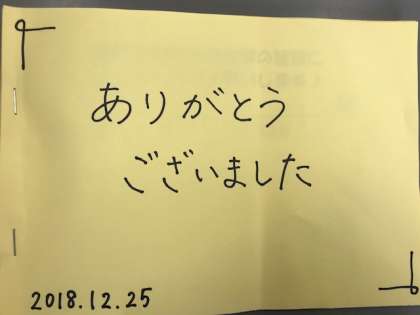 ありがとう
ございました
2018.12.25